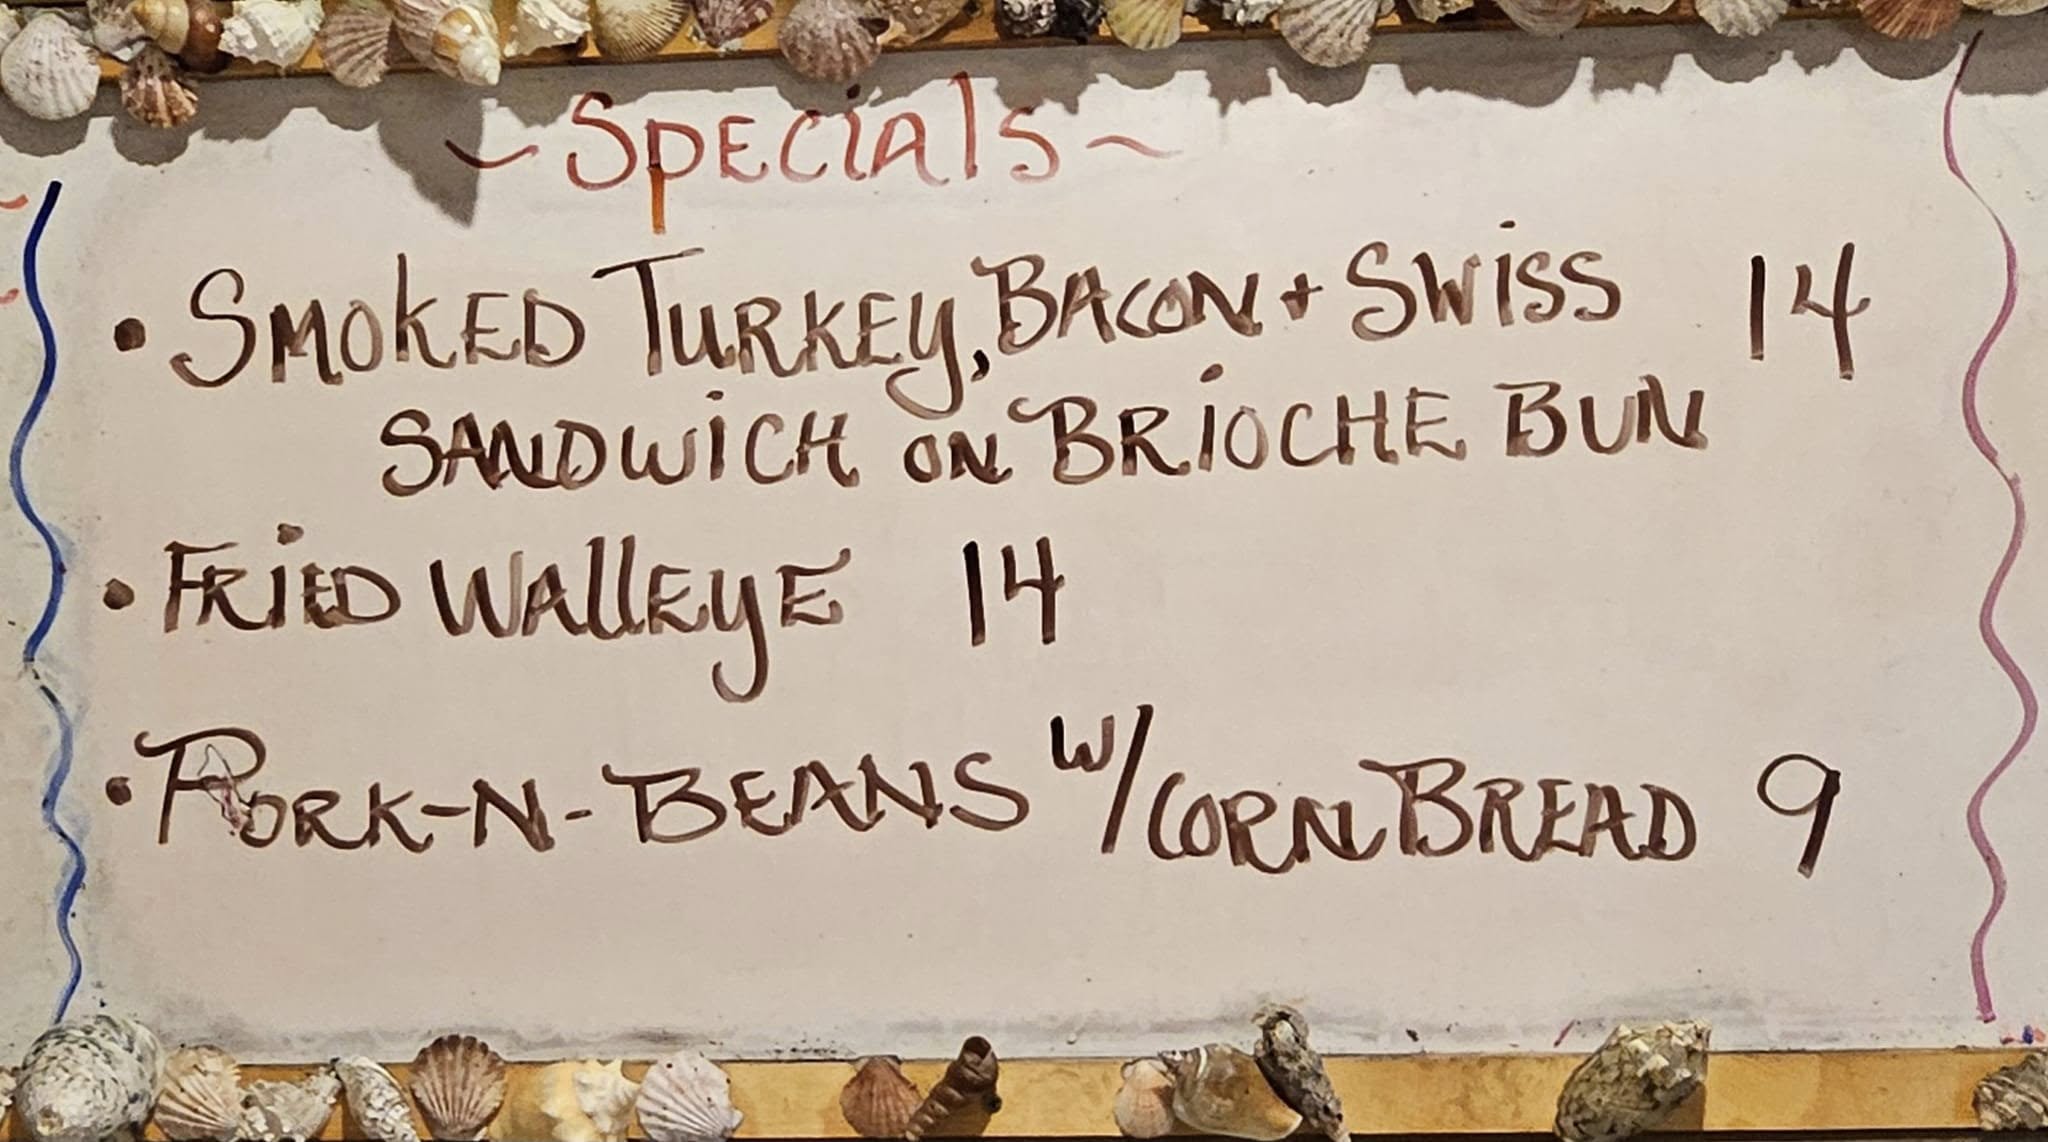 ~ Specials ~
• SMOKED TURKEY, BACON + SWISS 14
SANDWICH ON BRIOCHE BUN
• FRIED WALLEYE 14
• PORK-N-BEANS W/CORNBREAD 9